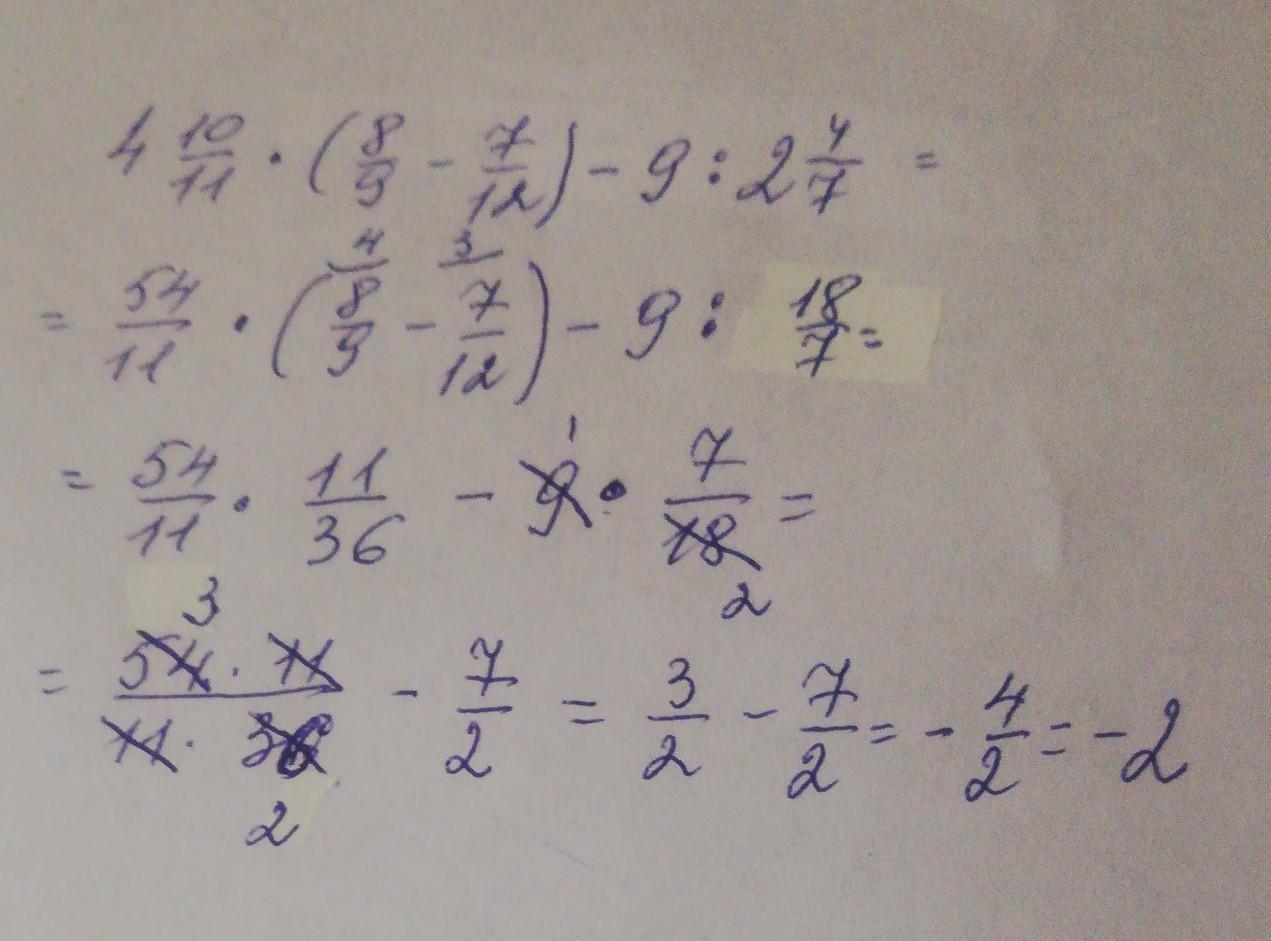 4 10/11 · (8/9 - 7/12) - 9 : 2 4/7 =
= 54/11 · (8/9 4/ - 7/12 3/) - 9 : 18/7 =
= 54/11 · 11/36 - 9 1 · 7/18 2 =
= 54 3 · 11 / 11 · 36 2 - 7/2 = 3/2 - 7/2 = - 4/2 = - 2